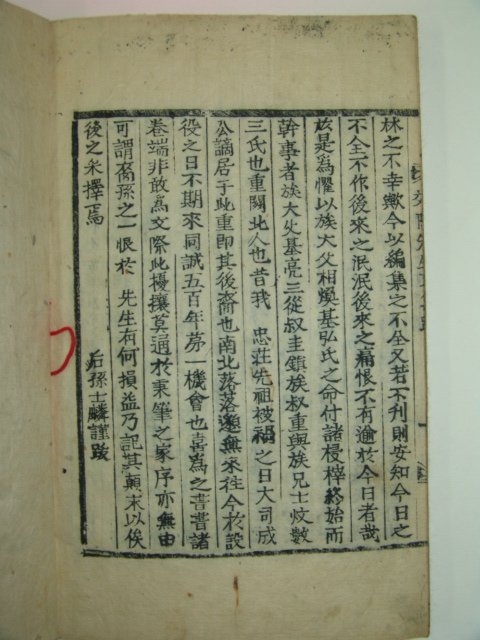 林之不幸歟今以編集之不全又若不刊則安知今日之
不全不作後來之泯泯後來之痛恨不有逾於今日者哉
玆是爲懼以族大父相煥基弘氏之命付諸梓終始而
幹事者族大父基亮三從叔圭鎮族叔重與族兄士炆數
三氏也重關北人也昔我 忠莊先祖被禍之日大司成
公謫居于此重即其後裔也南北落落邈無來往今於設
役之日不期來同誠五百年第一機會也喜爲之書書諸
卷端非敢爲文際此擾攘莫適於秉筆之家序亦無由
可謂裔孫之一恨於 先生有何損益乃記其顛末以俟
後之采擇焉
后孫士麟謹跋